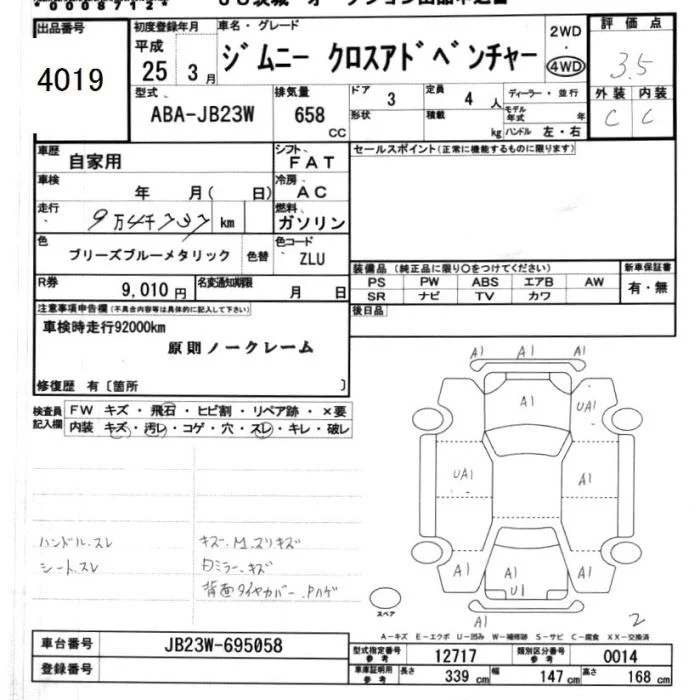 00087124
出品番号
4019
初度登録年月
平成
25 3月
車名・グレード
ジムニー クロスアドベンチャー
2WD
・
4WD
評価点
3.5
外装 内装
C C
型式
ABA-JB23W
排気量
658
CC
ドア
3
定員
4 人
ディーラー・並行
形状
積載
kg
モデル年式 年
ハンドル 左・右
車歴
自家用
シフト
FAT
車検
年 月( 日)
冷房
AC
走行
km
燃料
ガソリン
色
ブリーズブルーメタリック
色替
色コード
ZLU
R券
9,010円
名変通知期限
月 日
セールスポイント(正常に機能するものに限ります)
装備品(純正品に限り○をつけてください)
新車保証書
PS PW ABS エアB AW
SR ナビ TV カワ
有・無
後日品
注意事項申告欄(不具合内容等は具体的に記入して下さい)
車検時走行92000km
原則ノークレーム
修復歴 有〔箇所 〕
検査員記入欄
FW キズ・飛石・ヒビ割・リペア跡・×要
内装 キズ・汚レ・コゲ・穴・スレ・キレ・破レ
ハンドル.スレ
シート.スレ
キズ.M.スリキズ
ミラー.キズ
背面タイヤカバー.Pハゲ
A1 A1
A1 UA1
UA1 A1
A1 A1 A1
U1
A1 A1
スペア
2
A-キズ E-エクボ U-凹み W-補修跡 S-サビ C-腐食 XX-交換済
車台番号
JB23W-695058
登録番号
型式指定番号 参考
12717
類別区分番号 参考
0014
車庫証明用 参考
長さ 339 cm 幅 147 cm 高さ 168 cm